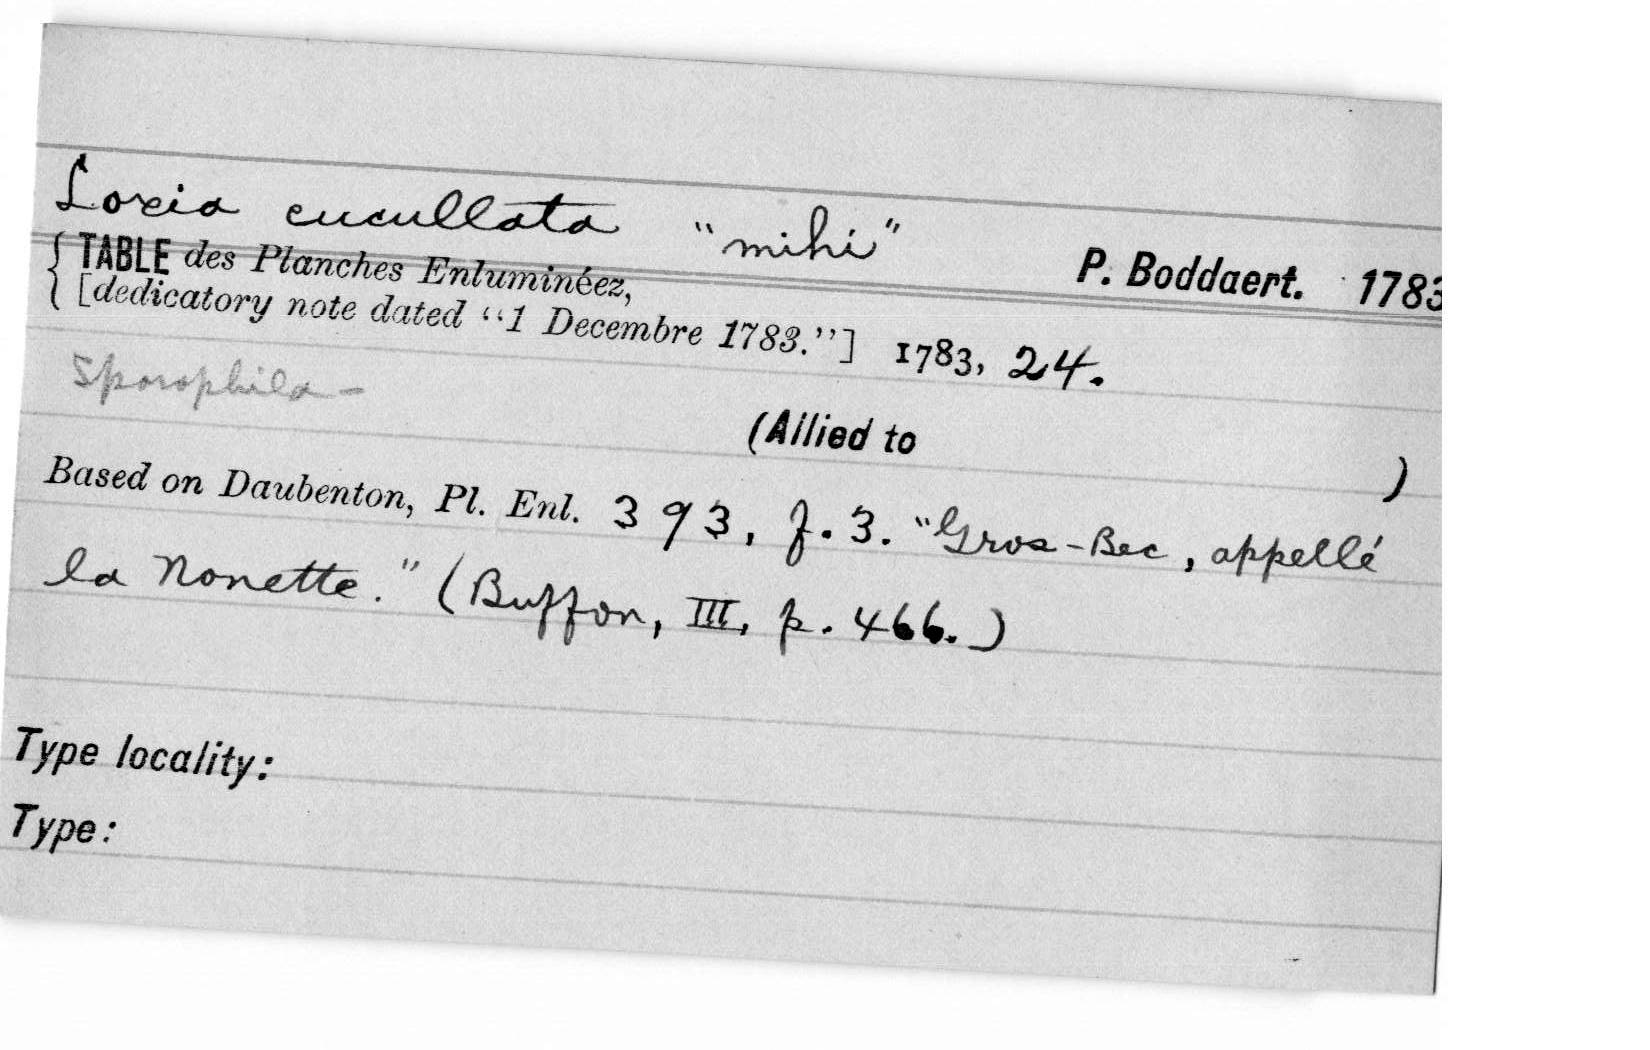 Loxia cucullata "mihi"
P. Boddaert. 1783
{ TABLE des Planches Enluminéez,
[dedicatory note dated "1 Decembre 1783."] 1783, 24.
Sporophila —
(Allied to )
Based on Daubenton, Pl. Enl. 393, f. 3. "Gros-Bec, appellé
la Nonette." (Buffon, III, p. 466.)
Type locality:
Type: